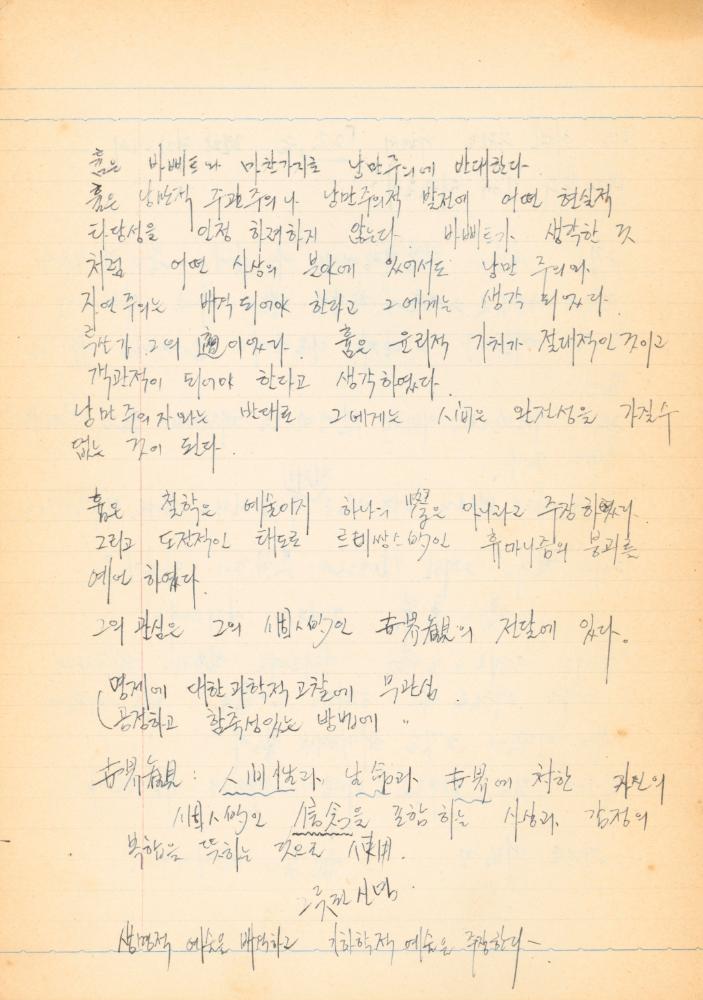 흄은 바뻬트와 마찬가지로 낭만주의에 반대한다.
흄은 낭만적 주관주의나 낭만주의적 발전에 어떤 현실적
타당성을 인정 하려하지 않는다. 바뻬트가 생각한 것
처럼 어떤 사상의 분야에 있어서도 낭만 주의와
자연주의는 배격되어야 한다고 그에게는 생각 되었다.
루소가 그의 이었다. 흄은 윤리적 가치가 절대적인 것이고
객관적이 되어야 한다고 생각하였다.
낭만주의자와는 반대로 그에게는 人间은 완전성을 가질수
없는 것이 된다.
흄은 철학은 예술이지 하나의 學은 아니라고 주장하였다.
그리고 도전적인 태도로 르네쌍스的인 휴마니즘의 붕괴를
예언 하였다.
그의 관심은 그의 個人的인 世界觀의 전달에 있다.
명제에 대한 과학적 고찰에 무관심.
공정하고 함축성있는 방법에 〃
世界觀: 人间性과, 生命과, 世界에 대한 자신의
個人的인 信念을 포함하는 사상과, 감정의
복합을 뜻하는 것으로 使用.
生명적 예술을 배격하고 기하학적 예술을 주장한다—